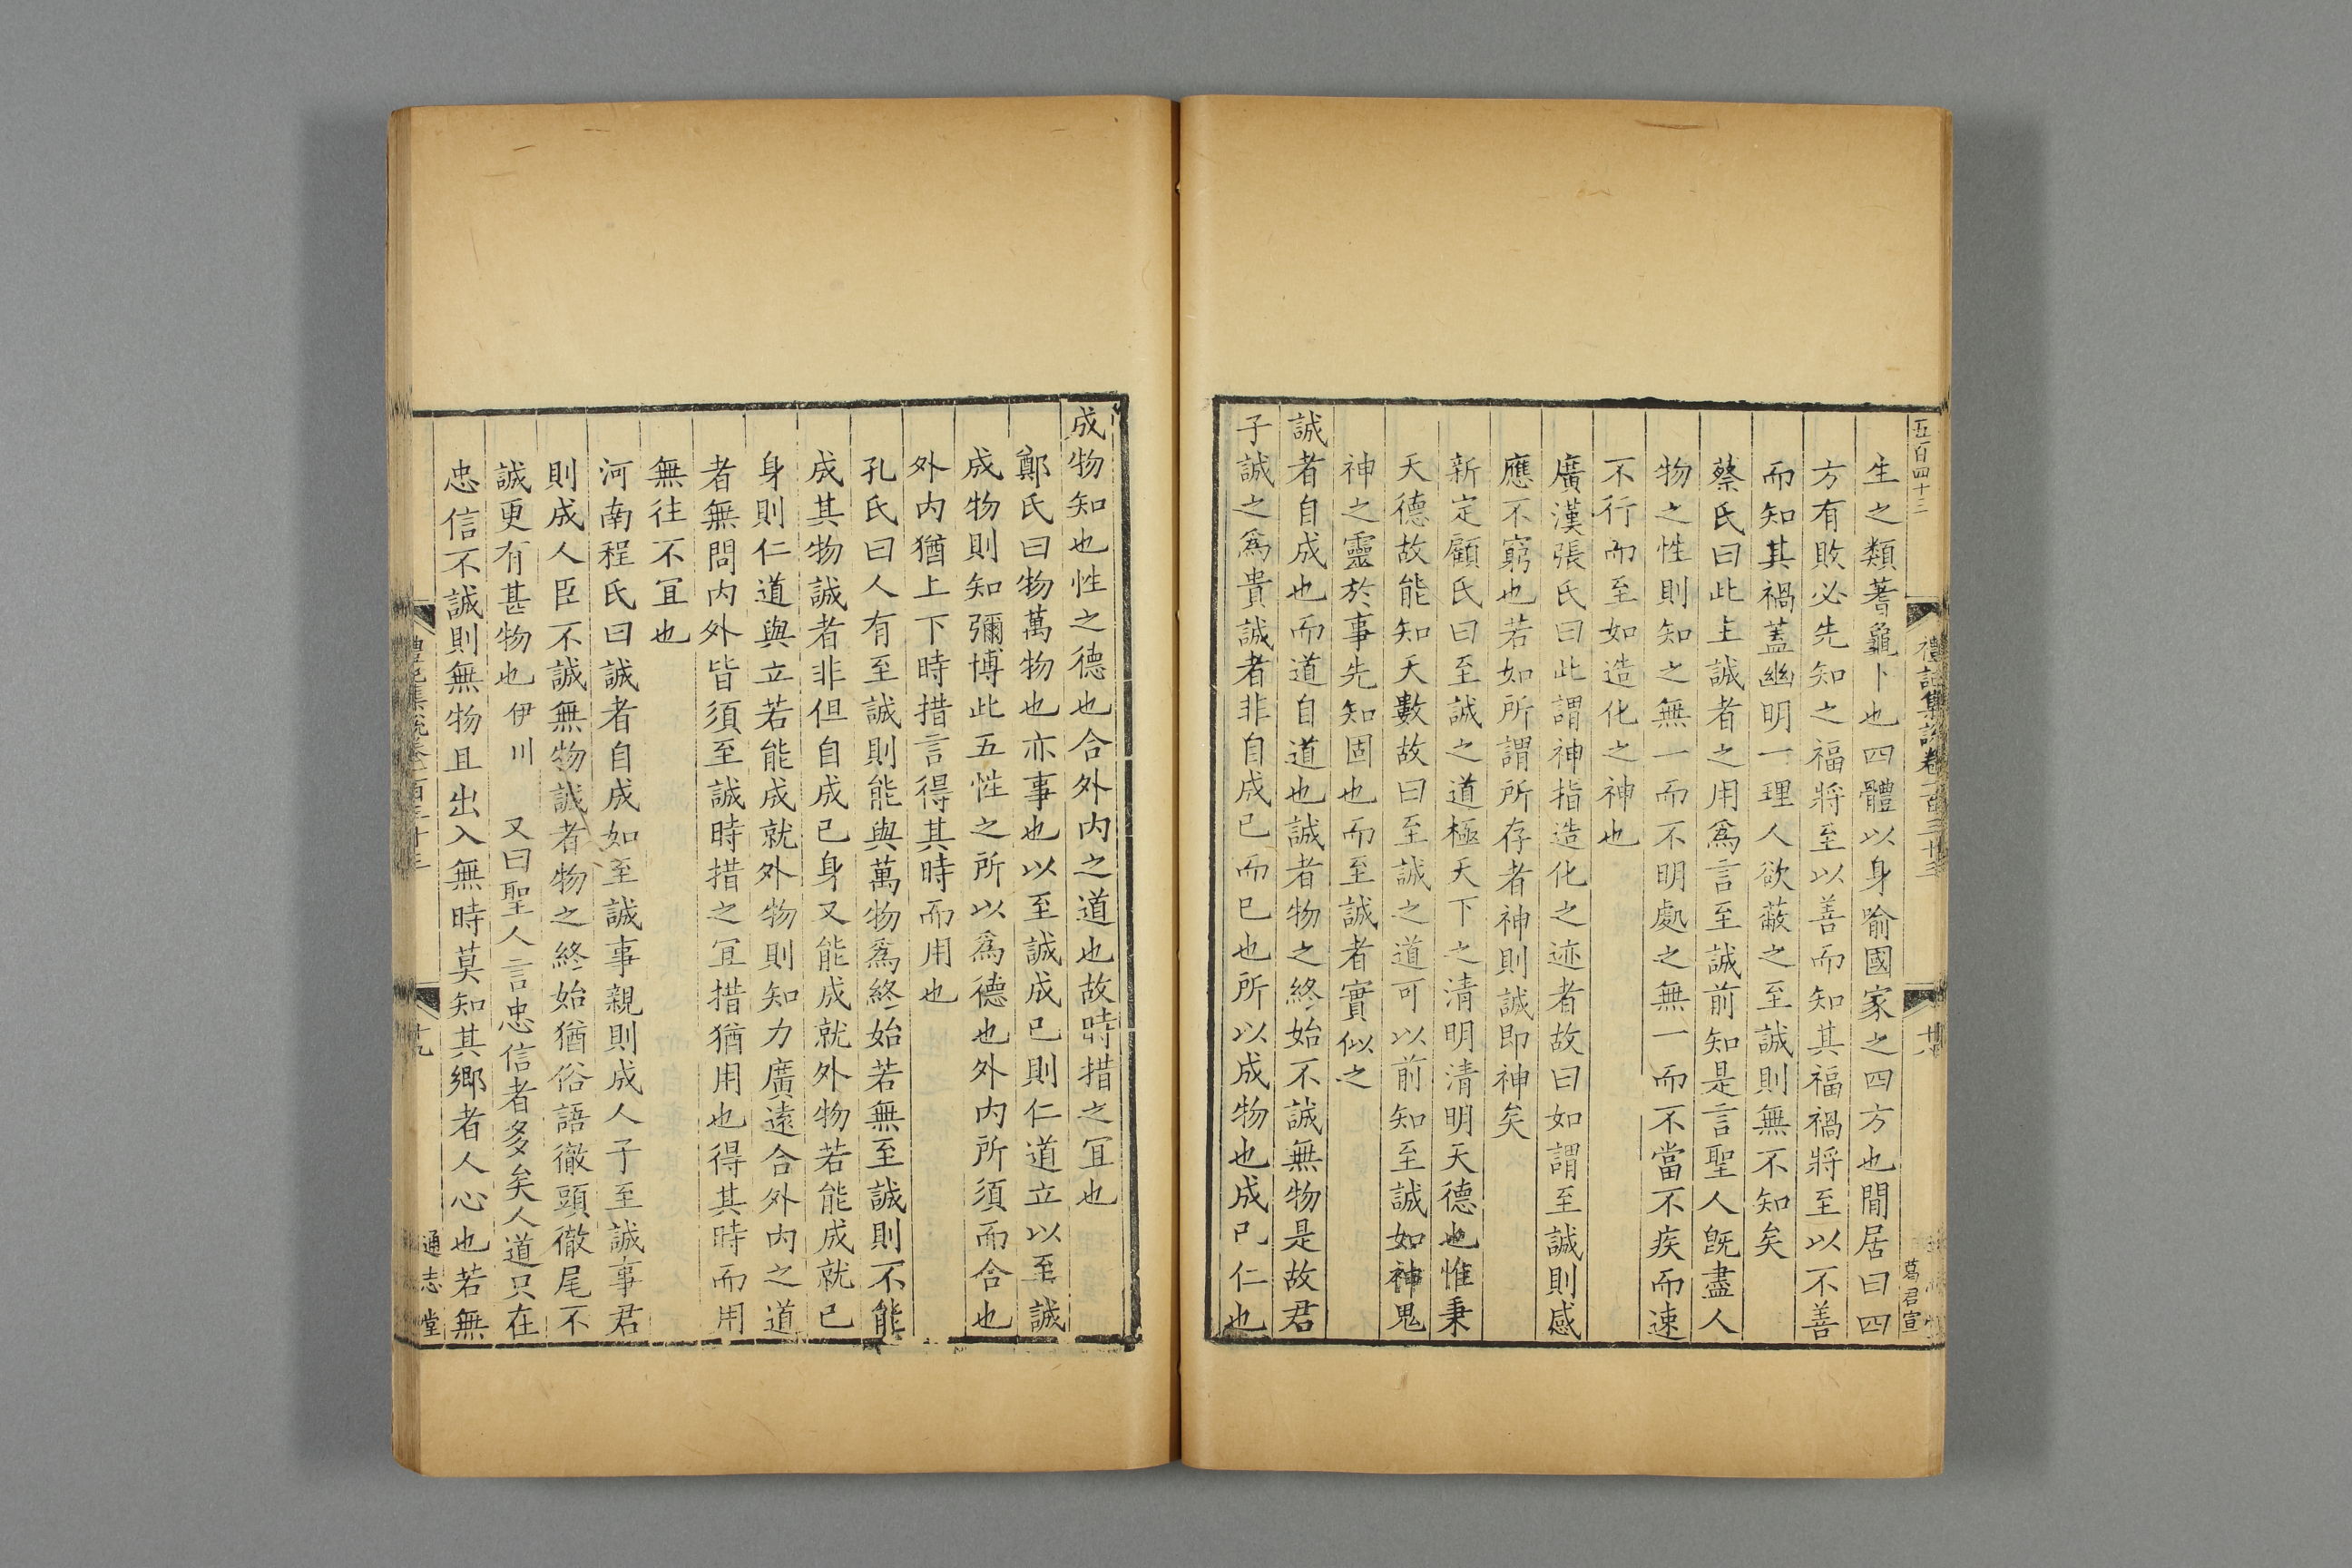 五百四十三
禮記集說卷一百三十三
十八
葛君宣
生之類蓍龜卜也四體以身喻國家之四方也閒居曰四
方有敗必先知之福將至以善而知其福禍將至以不善
而知其禍蓋幽明一理人欲蔽之至誠則無不知矣
蔡氏曰此主誠者之用爲言至誠前知是言聖人旣盡人
物之性則知之無一而不明處之無一而不當不疾而速
不行而至如造化之神也
廣漢張氏曰此謂神指造化之迹者故曰如謂至誠則感
應不窮也若如所謂所存者神則誠即神矣
新定顧氏曰至誠之道極天下之清明清明天德也惟秉
天德故能知天數故曰至誠之道可以前知至誠如神鬼
神之靈於事先知固也而至誠者實似之
誠者自成也而道自道也誠者物之終始不誠無物是故君
子誠之爲貴誠者非自成已而已也所以成物也成已仁也
成物知也性之德也合外内之道也故時措之冝也
鄭氏曰物萬物也亦事也以至誠成已則仁道立以至誠
成物則知彌博此五性之所以爲德也外内所須而合也
外内猶上下時措言得其時而用也
孔氏曰人有至誠則能與萬物爲終始若無至誠則不能
成其物誠者非但自成已身又能成就外物若能成就已
身則仁道與立若能成就外物則知力廣遠合外内之道
者無問内外皆須至誠時措之冝措猶用也得其時而用
無往不冝也
河南程氏曰誠者自成如至誠事親則成人子至誠事君
則成人臣不誠無物誠者物之終始猶俗語徹頭徹尾不
誠更有甚物也伊川 又曰聖人言忠信者多矣人道只在
忠信不誠則無物且出入無時莫知其鄉者人心也若無
禮記集說卷一百三十三
十九
通志堂